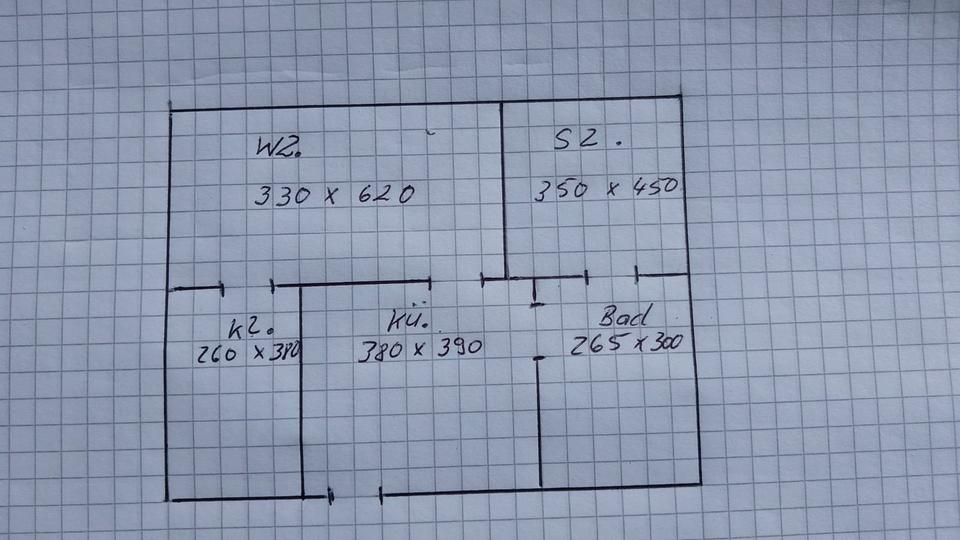 WZ.
330 x 620
SZ.
350 x 450
KZ.
260 x 380
Kü.
380 x 390
Bad
265 x 300